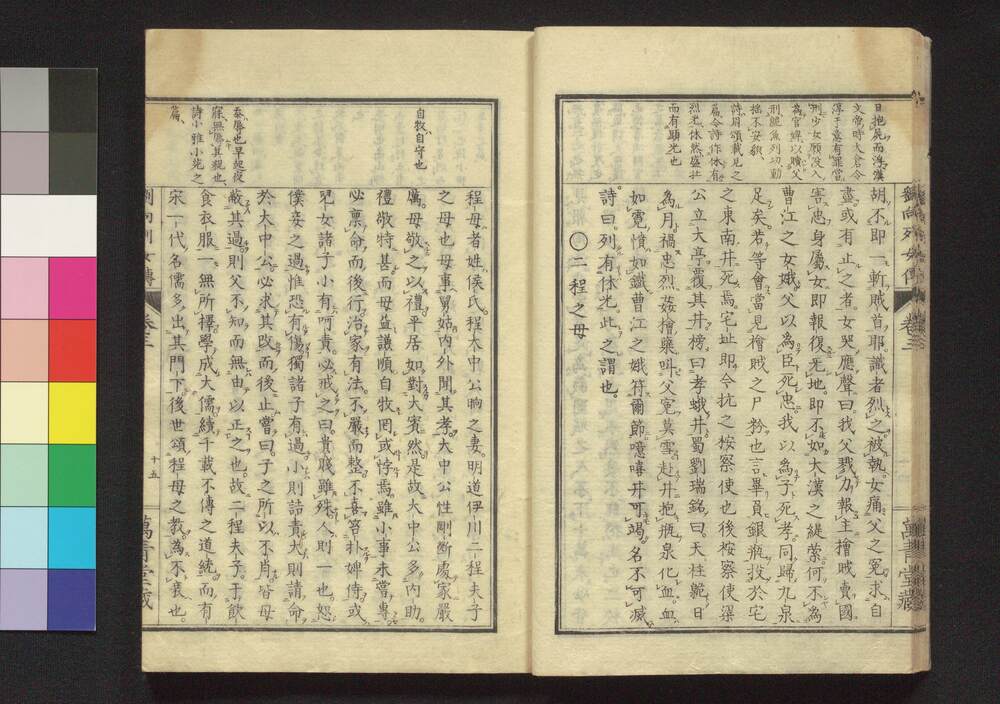 日抱屍而没漢
文帝時太倉令
淳于意有罪當
刑少女願没入
為官婢以贖父
刑
揺不安貌
詩周頌載見之
篇令詩作休有
烈光休然盛壮
而有顯光也
劉向列女傳
卷三
萬青堂藏
胡不即一斬賊首耶識者烈之被執女痛父之冤求自
盡或有止之者女哭應聲曰我父戮力報主檜賊賣國
害忠身屬女即報復无地即不如大漢之緹縈何不為
曹江之女娥父以為臣死忠我以為子死孝同歸九泉
足矣若等會當見檜賊之尸矜也言畢負銀瓶投於宅
之東南井死焉宅址即今抗之桉察使也後桉察使梁
公立大亭覆其井榜曰孝娥井蜀劉瑞銘曰天柱毙日
為月禍忠烈姦檜藥叫父冤莫雪赴井抱瓶泉化血血
如霓憤如鐵曹江之娥符爾節噫嘻井可竭名不可滅
詩曰列有休光此之謂也
〇二程之母
自牧自守也
忝辱也早起夜
寐無辱其親也
詩小雅小宛之
篇
程母者姓侯氏程大中公晌之妻明道伊川二程夫子
之母也母事舅姑内外聞其孝大中公性剛断處家嚴
厲母敬之以禮平居如對大賓然是故大中公多内助
禮敬特甚而母益謙順自牧罔或悖焉雖小事未嘗專
必禀命而後行治家有法不嚴而整不喜笞扑婢侍或
兒女諸子小有呵責必戒之曰貴賤雖殊人則一也恕
僕妾之過惟恐有傷獨諸子有過小則詰責大則請命
於大中公必求其改而後止嘗曰子之所以不肖皆母
蔽其過則父不知而無由以正之也故二程夫子于飲
食衣服一無所擇學成大儒續千載不傳之道統而有
宋一代名儒多出其門下後世頌程母之教為不衰也
劉向列女傳
卷三
十五
萬青堂藏